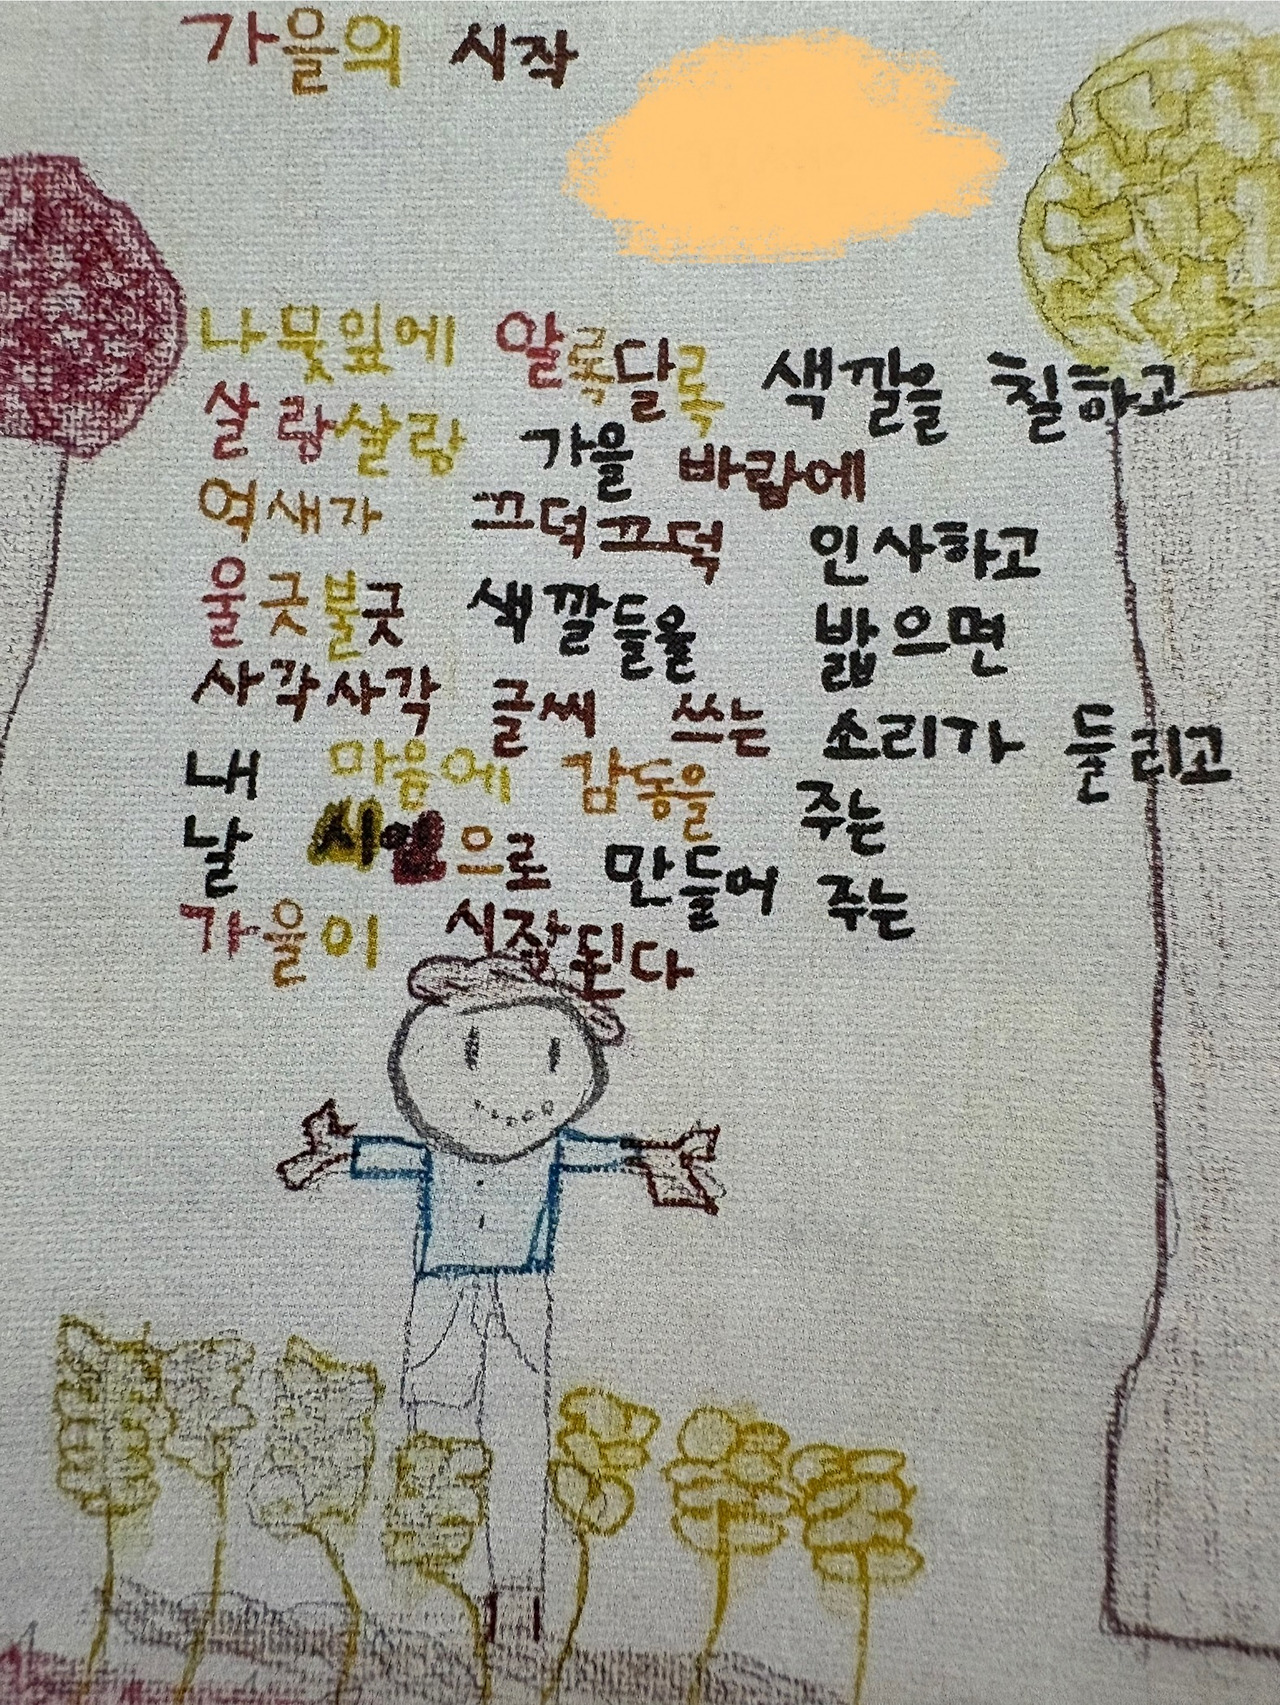 가을의 시작
나뭇잎에 알록달록 색깔을 칠하고
살랑살랑 가을 바람에
억새가 끄덕끄덕 인사하고
울긋불긋 색깔들을 밟으면
사각사각 글씨 쓰는 소리가 들리고
내 마음에 감동을 주는
날 시인으로 만들어 주는
가을이 시작된다